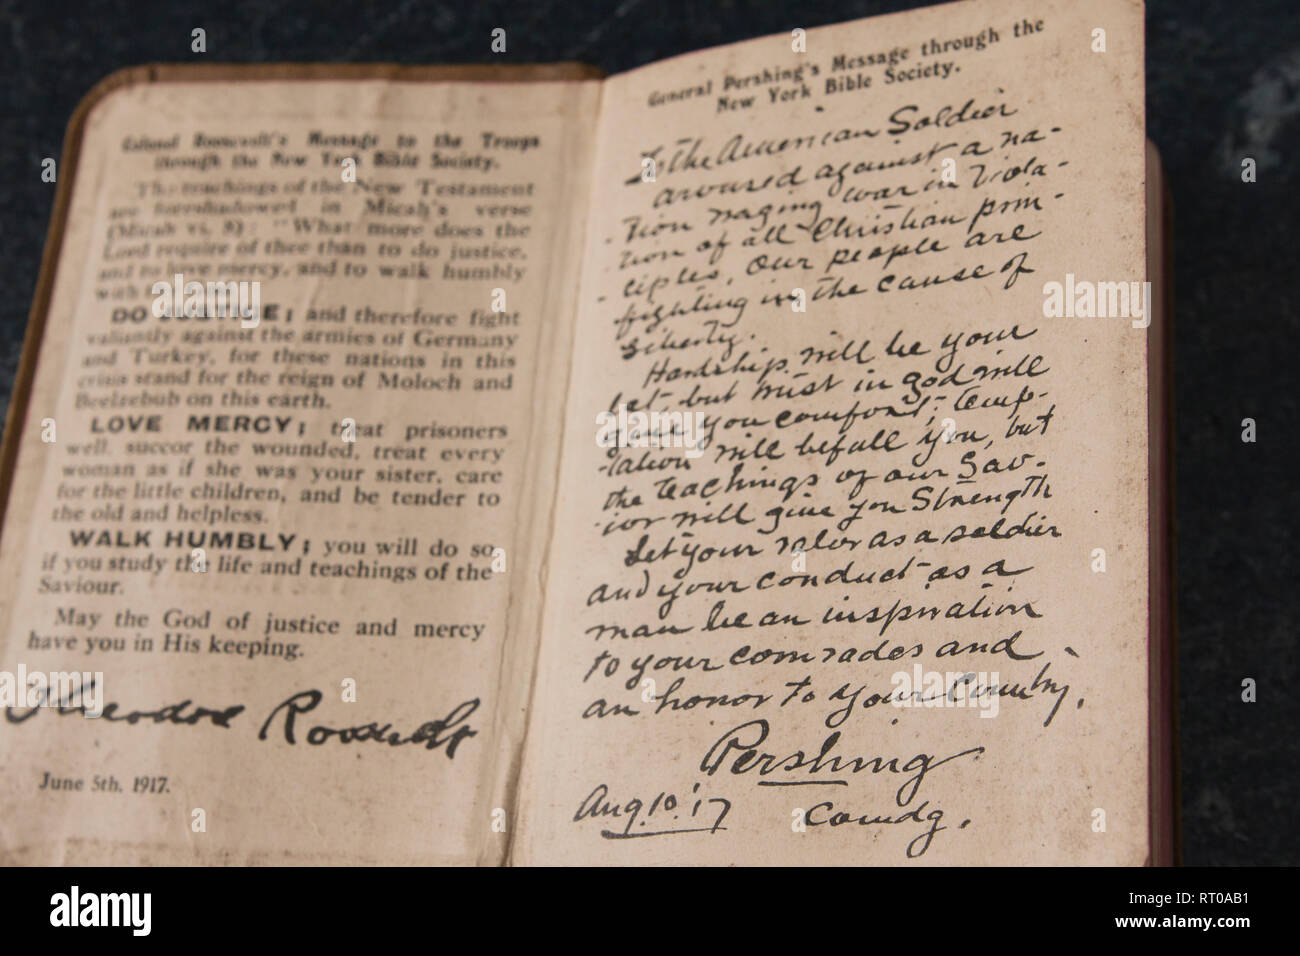 Colonel Roosevelt's Message to the Troops
through the New York Bible Society.
The teachings of the New Testament
are foreshadowed in Micah's verse
(Micah vi. 8): "What more does the
Lord require of thee than to do justice,
and to love mercy, and to walk humbly
with
DO JUSTICE; and therefore fight
valiantly against the armies of Germany
and Turkey, for these nations in this
crisis stand for the reign of Moloch and
Beelzebub on this earth.
LOVE MERCY; treat prisoners
well, succor the wounded, treat every
woman as if she was your sister, care
for the little children, and be tender to
the old and helpless.
WALK HUMBLY; you will do so
if you study the life and teachings of the
Saviour.
May the God of justice and mercy
have you in His keeping.
Theodore Roosevelt
June 5th. 1917.
General Pershing's Message through the
New York Bible Society.
To the American Soldier
aroused against a na-
tion waging war in viola-
tion of all Christian prin-
ciples, Our people are
fighting in the cause of
liberty.
Hardship will be your
lot, but trust in God will
give you comfort; temp-
tation will befall you, but
the teachings of our Sav-
ior will give you strength
Let your valor as a soldier
and your conduct as a
man be an inspiration
to your comrades and
an honor to your Country.
Pershing
Aug. 10. '17 Comdg.
a alamy
alamy
Image ID: RT0AB1
www.alamy.com